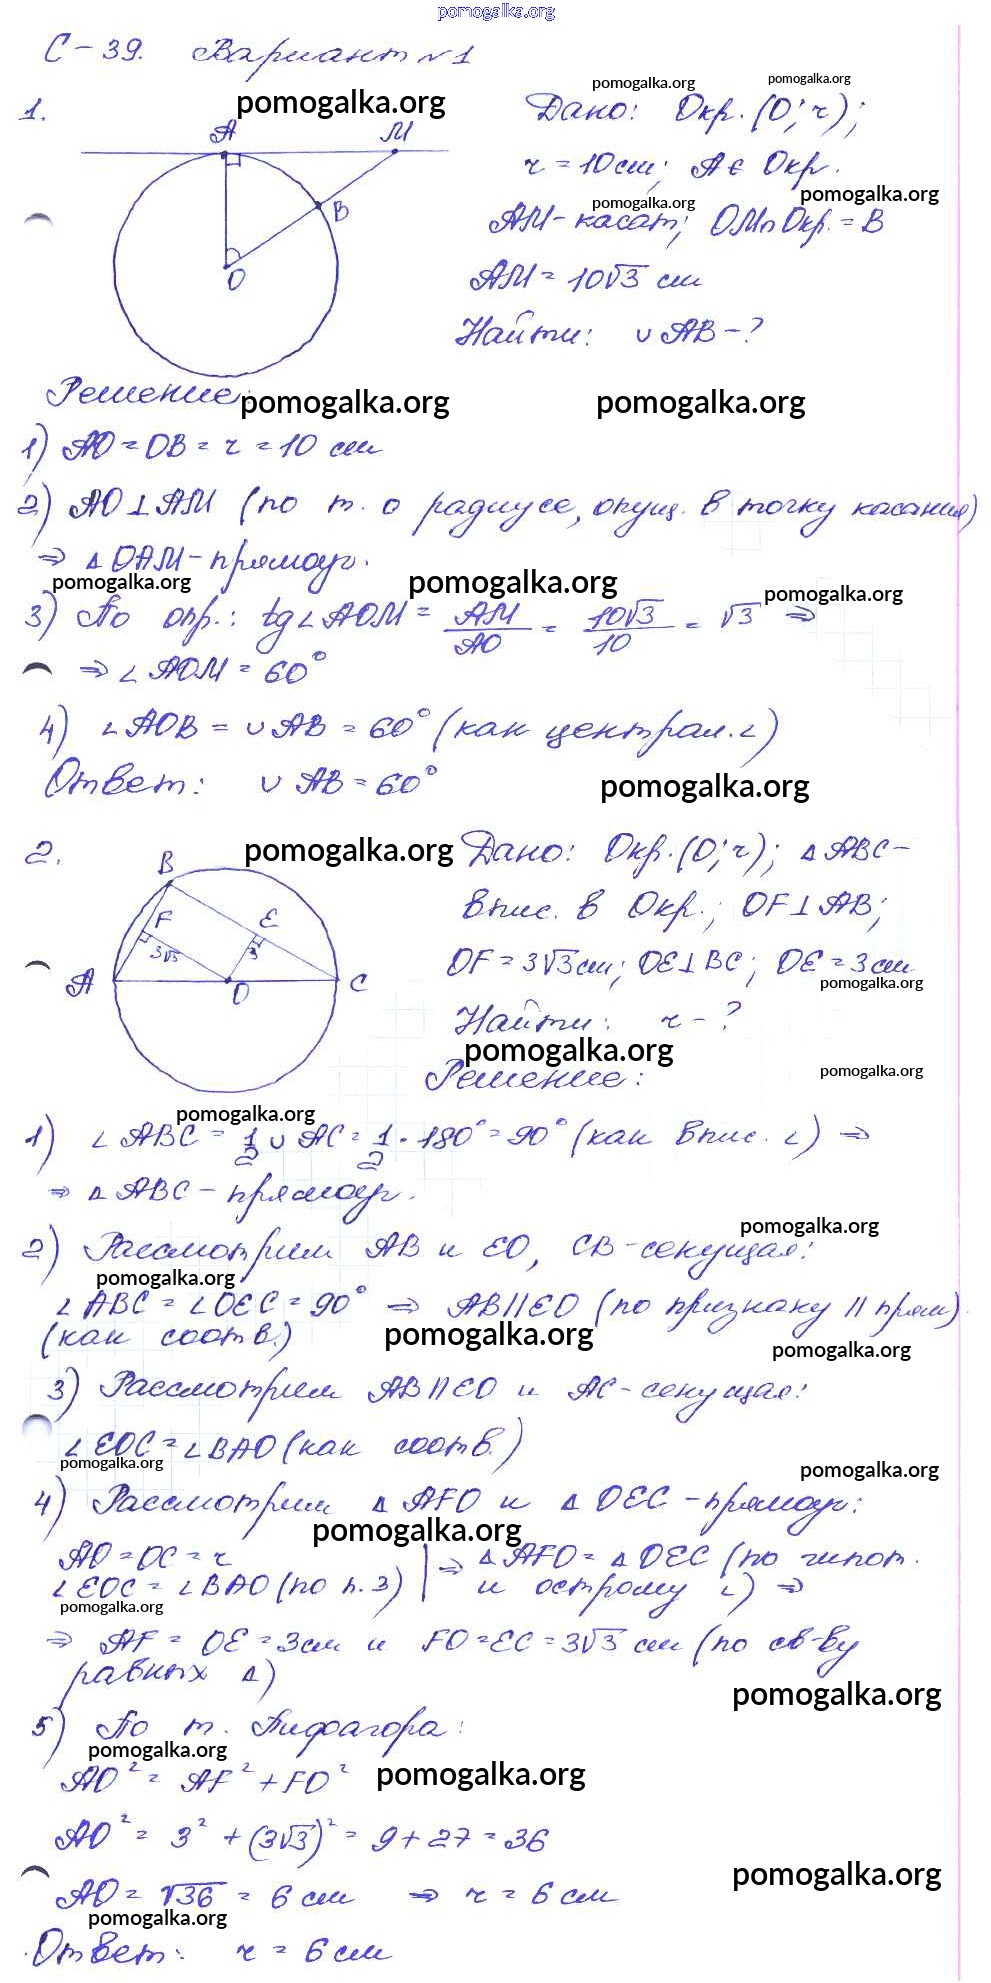 pomogalka.org
С-39. Вариант №1
pomogalka.org
pomogalka.org
pomogalka.org
1.
A
M
B
O
Дано: Окр. (O; r);
r = 10 см; A ∈ Окр.
pomogalka.org
pomogalka.org
AM - касат; OM∩Окр. = B
AM = 10√3 см
Найти: ∪ AB - ?
Решение:
pomogalka.org
pomogalka.org
1) AO = OB = r = 10 см
2) AO ⊥ AM (по т. о радиусе, опущ. в точку касания)
⇒ △ OAM - прямоуг.
pomogalka.org
pomogalka.org
pomogalka.org
3) По опр.: tg∠AOM = AM/AO = 10√3/10 = √3 ⇒
⇒ ∠ AOM = 60°
4) ∠ AOB = ∪ AB = 60° (как централ. ∠)
Ответ: ∪ AB = 60°
pomogalka.org
2.
B
F
E
3√3
3
A
O
C
pomogalka.org
Дано: Окр. (O; r); △ ABC -
впис. в Окр.; OF ⊥ AB;
OF = 3√3 см; OE ⊥ BC; OE = 3 см
pomogalka.org
Найти: r - ?
pomogalka.org
Решение:
pomogalka.org
pomogalka.org
1) ∠ ABC = 1/2 ∪ AC = 1/2 · 180° = 90° (как впис. ∠) ⇒
⇒ △ ABC - прямоуг.
pomogalka.org
2) Рассмотрим AB и EO, CB - секущая:
pomogalka.org
∠ ABC = ∠ OEC = 90° ⇒ AB || EO (по признаку || прям).
(как соотв.)
pomogalka.org
pomogalka.org
3) Рассмотрим AB || EO и AC - секущая:
∠ EOC = ∠ BAO (как соотв.)
pomogalka.org
pomogalka.org
4) Рассмотрим △ AFO и △ OEC - прямоуг:
pomogalka.org
AO = OC = r | ⇒ △ AFO = △ OEC (по гипот.
∠ EOC = ∠ BAO (по п. 3) | и острому ∠) ⇒
pomogalka.org
⇒ AF = OE = 3 см и FO = EC = 3√3 см (по св-ву
равных △)
pomogalka.org
5) По т. Пифагора:
pomogalka.org
pomogalka.org
AO² = AF² + FO²
AO² = 3² + (3√3)² = 9 + 27 = 36
pomogalka.org
AO = √36 = 6 см ⇒ r = 6 см
pomogalka.org
Ответ: r = 6 см